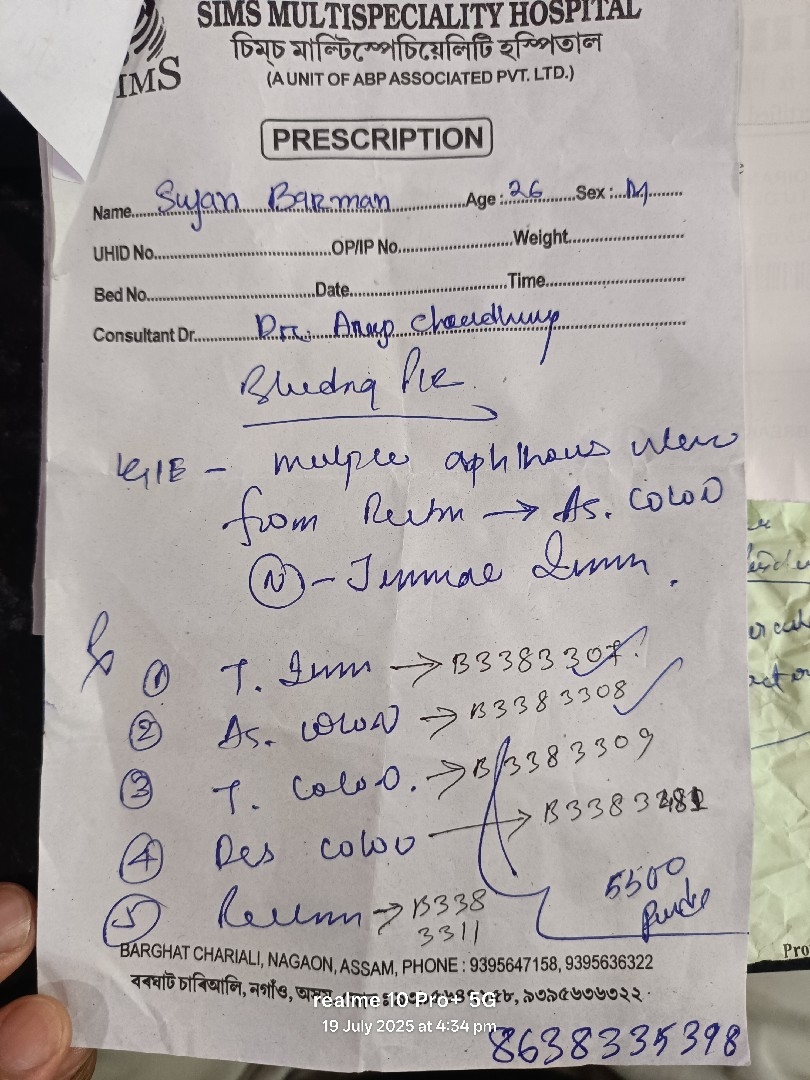 SIMS MULTISPECIALITY HOSPITAL
চিম্‌চ মাল্টিস্পেচিয়েলিটি হস্পিতাল
IMS
(A UNIT OF ABP ASSOCIATED PVT. LTD.)
PRESCRIPTION
Name Sujan Barman Age : 26 Sex : M
UHID No. OP/IP No. Weight
Bed No. Date Time
Consultant Dr. Dr. Anup Choudhury
multiple aphthous ulcer
from Rectum → As. COLON
(N) - Terminal Ileum.
1 T. Ileum → B3383307
2 As. COLON → B3383308
3 T. COLON. → B3383309
4 Des COLON → B3383
5 Rectum → B338
3311
5500
BARGHAT CHARIALI, NAGAON, ASSAM, PHONE : 9395647158, 9395636322
বৰঘাট চাৰিআলি, নগাঁও, ৯৩৯৫৬৩৬৩২২
realme 10 Pro+ 5G
19 July 2025 at 4:34 pm
8638335398
Pro